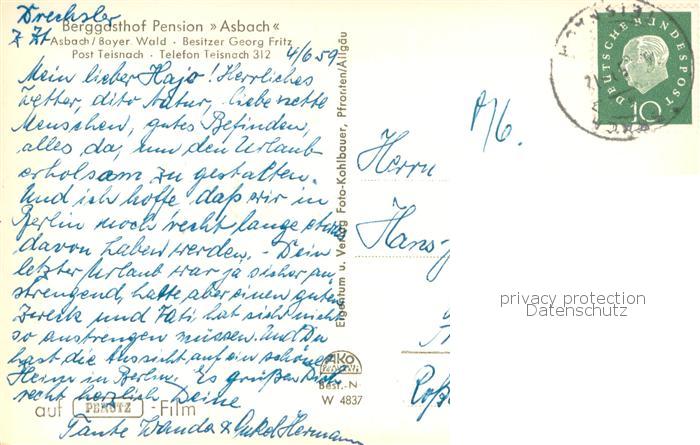 Drechsler
z Zt
Berggasthof Pension »Asbach«
Asbach/Bayer. Wald · Besitzer Georg Fritz
Post Teisnach · Telefon Teisnach 312
4/6.59
Mein lieber Hajo! Herrliches
Wetter, dito Natur, liebe nette
Menschen, gutes Befinden,
alles da, um den Urlaub
erholsam zu gestalten.
Und ich hoffe daß wir in
Berlin noch recht lange etwas
davon haben werden. - Dein
letzter Urlaub war ja sicher an
strengend, hatte aber einen guten
Zweck und Vati hat sich nicht
so anstrengen müssen. Und Du
hast die Aussicht auf ein schönes
Heim in Berlin. Es grüßen Dich
recht herzlich Deine
Tante Wanda & Onkel Hermann
auf PERUTZ -Film
Eigentum u. Verlag Foto-Kohlbauer, Pfronten/Allgäu
Best.-N
W 4837
DEUTSCHE BUNDESPOST
10
Herrn
Hans-
privacy protection
Datenschutz